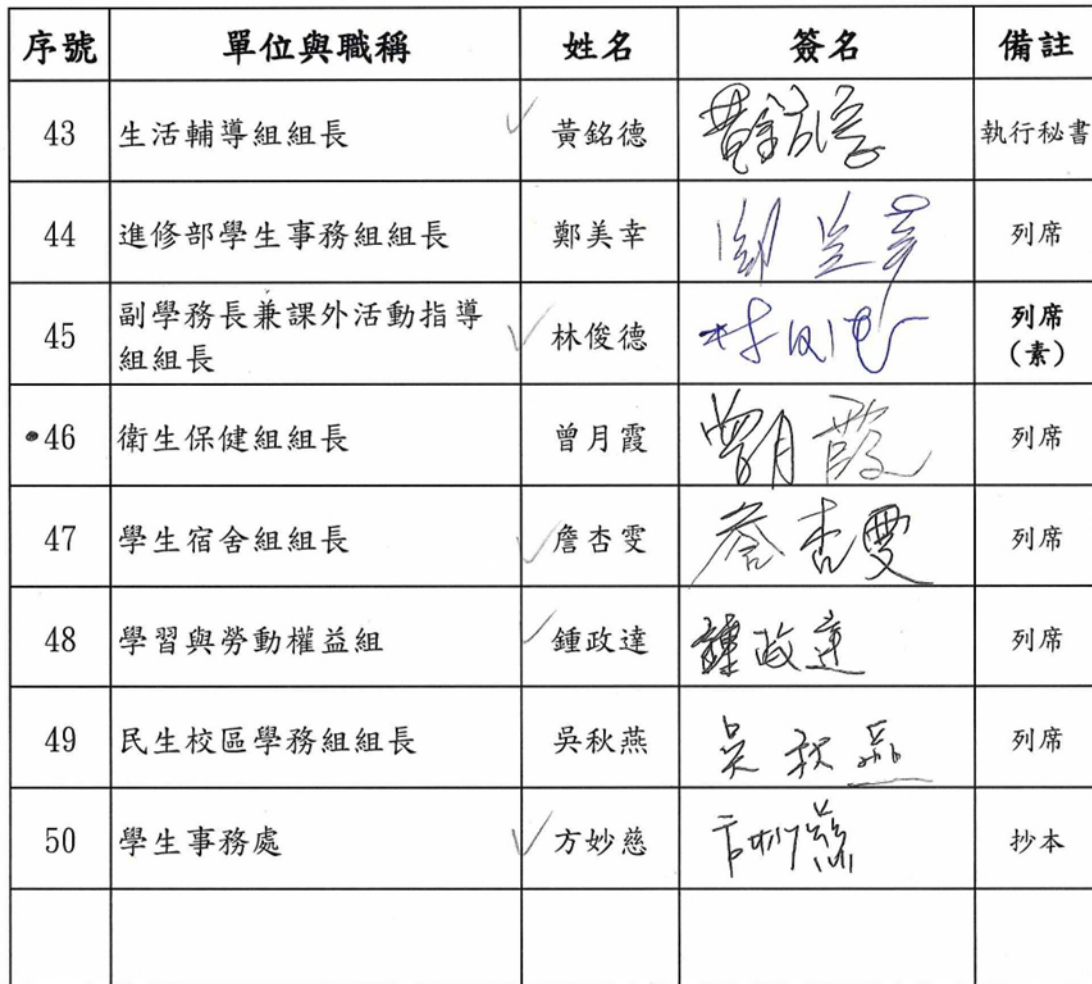 序號 單位與職稱 姓名 簽名 備註
43 生活輔導組組長 黃銘德 執行秘書
44 進修部學生事務組組長 鄭美幸 列席
45 副學務長兼課外活動指導 林俊德 林俊德 列席
組組長 (素)
46 衛生保健組組長 曾月霞 曾月霞 列席
47 學生宿舍組組長 詹杏雯 詹杏雯 列席
48 學習與勞動權益組 鍾政達 鍾政達 列席
49 民生校區學務組組長 吳秋燕 吳秋燕 列席
50 學生事務處 方妙慈 方妙慈 抄本